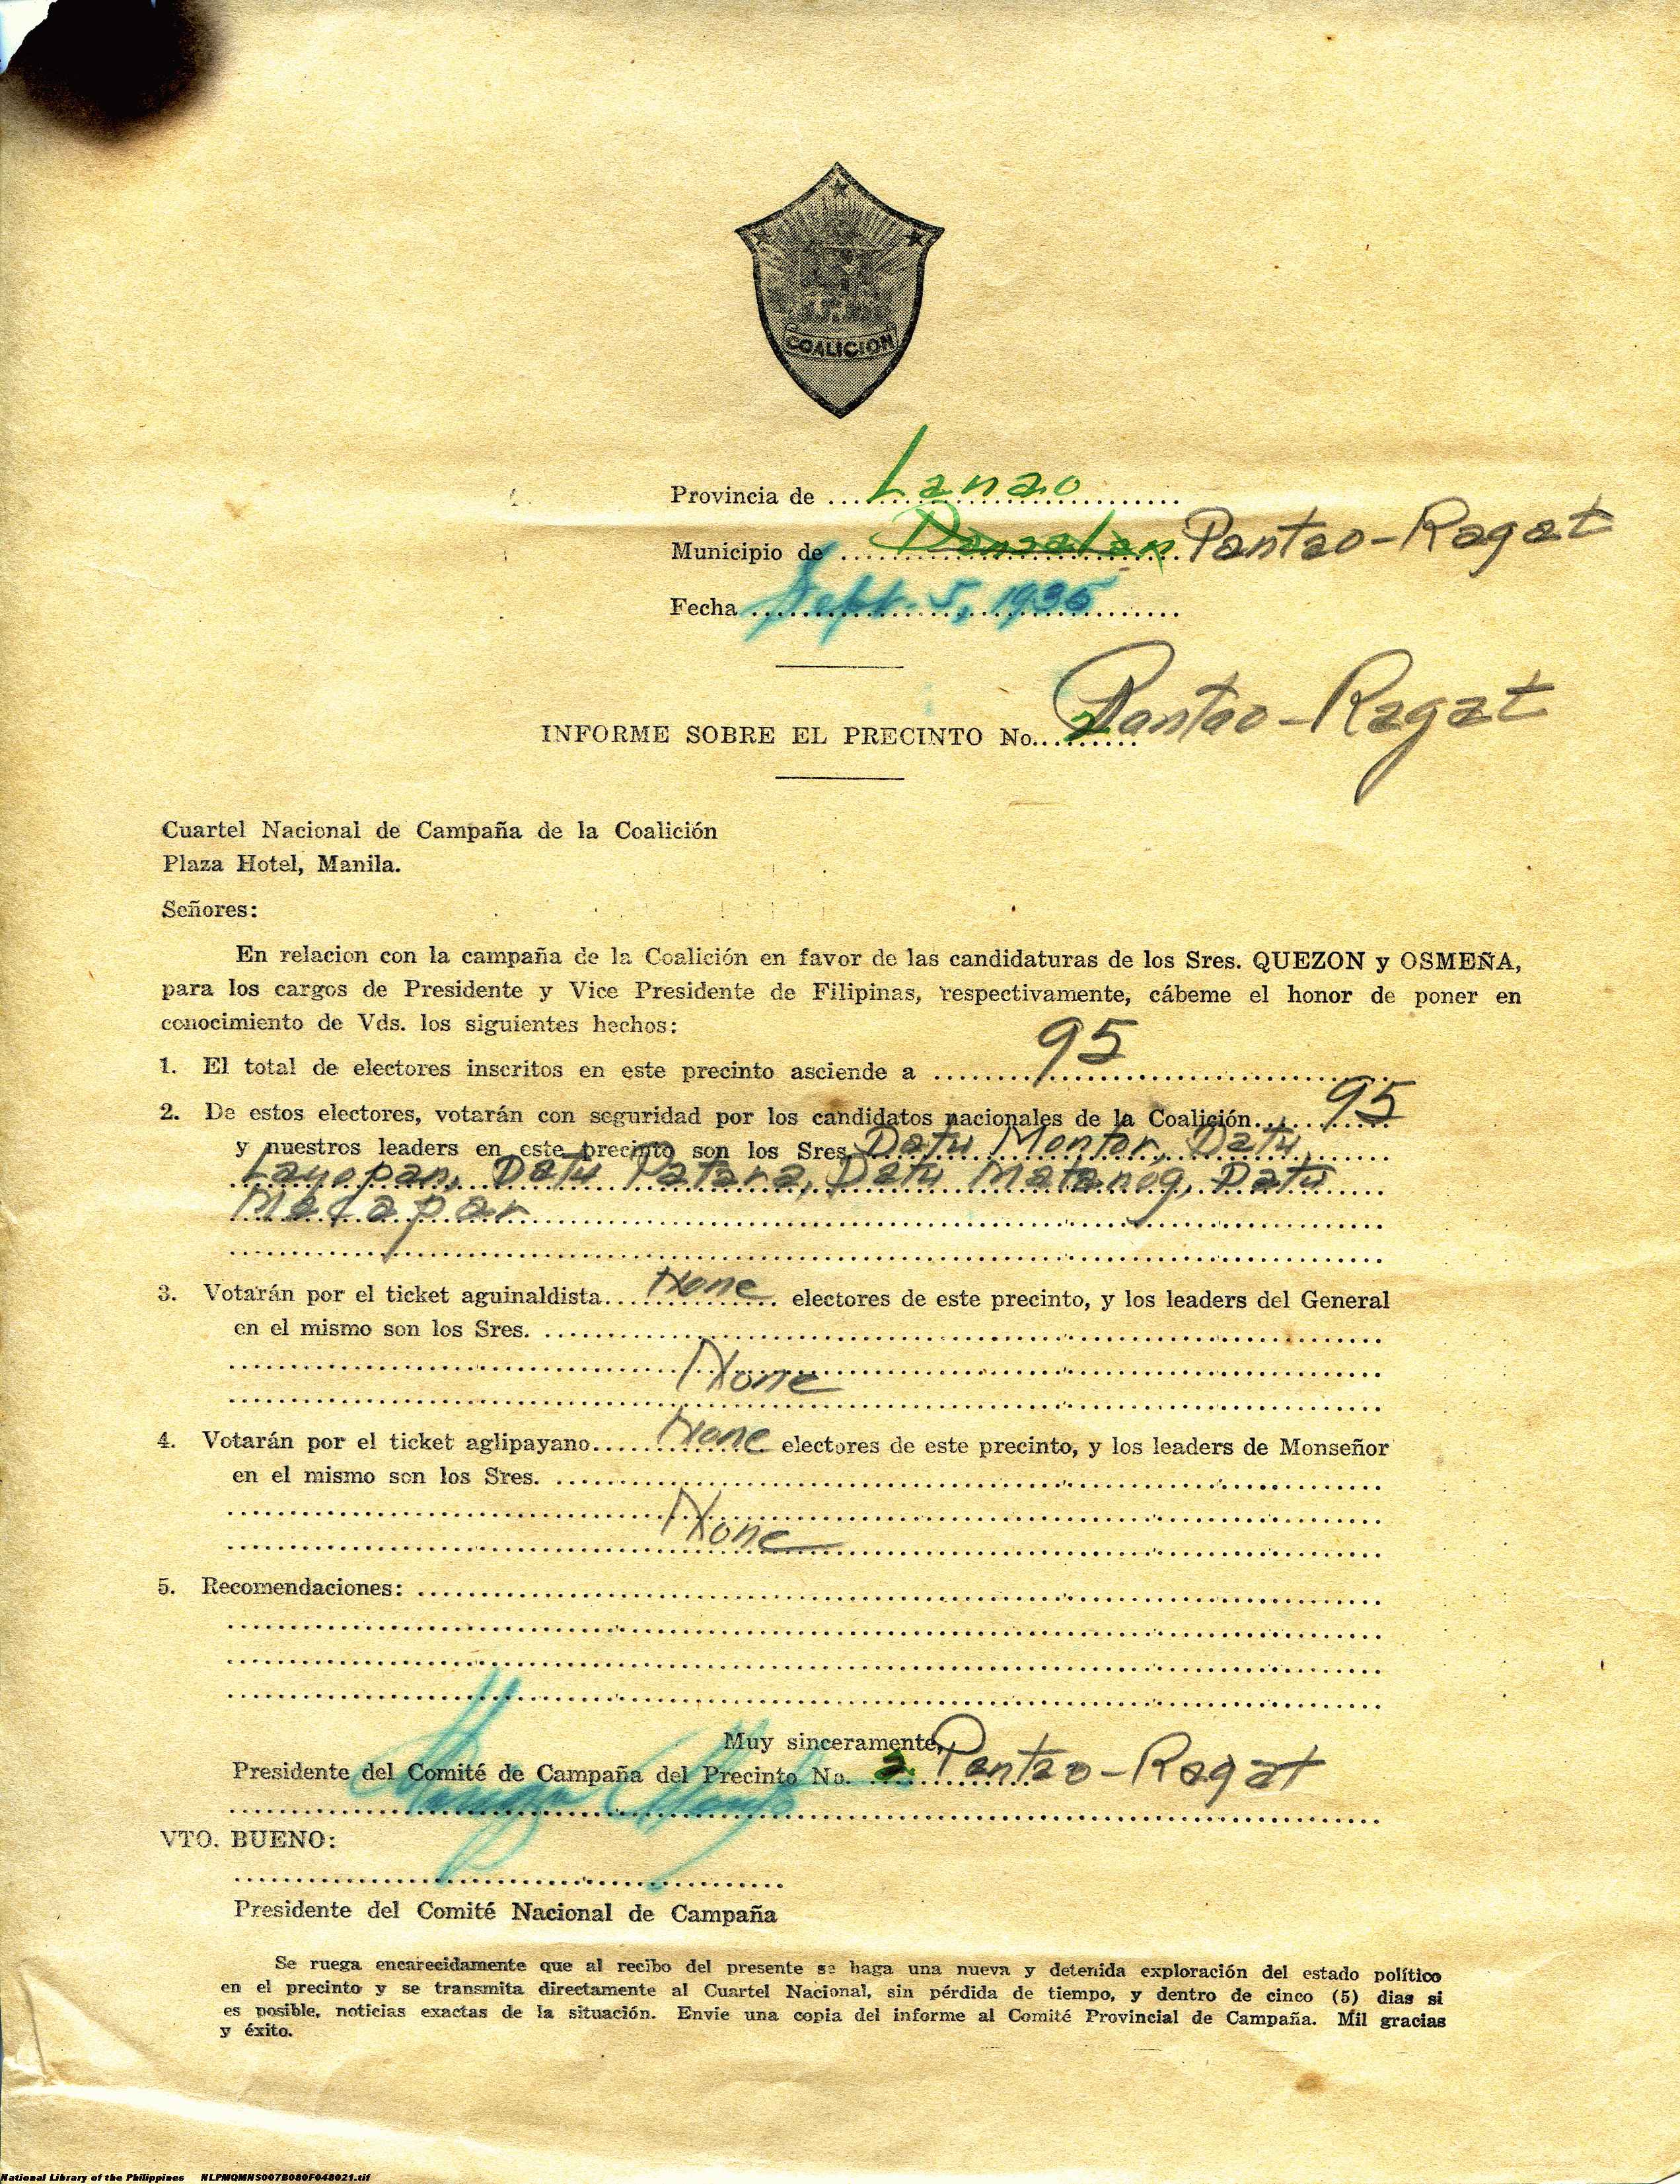 COALICION
Provincia de ... Lanao
Municipio de ... Dansalan Pantao-Ragat
Fecha ... Sept. 5, 1935
INFORME SOBRE EL PRECINTO No. 2 Pantao-Ragat
Cuartel Nacional de Campaña de la Coalición
Plaza Hotel, Manila.
Señores:
En relacion con la campaña de la Coalición en favor de las candidaturas de los Sres. QUEZON y OSMEÑA,
para los cargos de Presidente y Vice Presidente de Filipinas, respectivamente, cábeme el honor de poner en
conocimiento de Vds. los siguientes hechos:
1. El total de electores inscritos en este precinto asciende a ... 95
2. De estos electores, votarán con seguridad por los candidatos nacionales de la Coalición... 95
y nuestros leaders en este precinto son los Sres. Datu Montor, Datu
Layopan, Datu Patara, Datu Matanog, Datu
Macapar
3. Votarán por el ticket aguinaldista... None electores de este precinto, y los leaders del General
en el mismo son los Sres. ...
None
4. Votarán por el ticket aglipayano... None electores de este precinto, y los leaders de Monseñor
en el mismo son los Sres. ...
None
5. Recomendaciones: ...
Muy sinceramente,
Presidente del Comité de Campaña del Precinto No. 2 Pantao-Ragat
VTO. BUENO:
Presidente del Comité Nacional de Campaña
Se ruega encarecidamente que al recibo del presente se haga una nueva y detenida exploración del estado político
en el precinto y se transmita directamente al Cuartel Nacional, sin pérdida de tiempo, y dentro de cinco (5) dias si
es posible, noticias exactas de la situación. Envie una copia del informe al Comité Provincial de Campaña. Mil gracias
y éxito.
National Library of the Philippines NLPMQMNS007B080F048021.tif